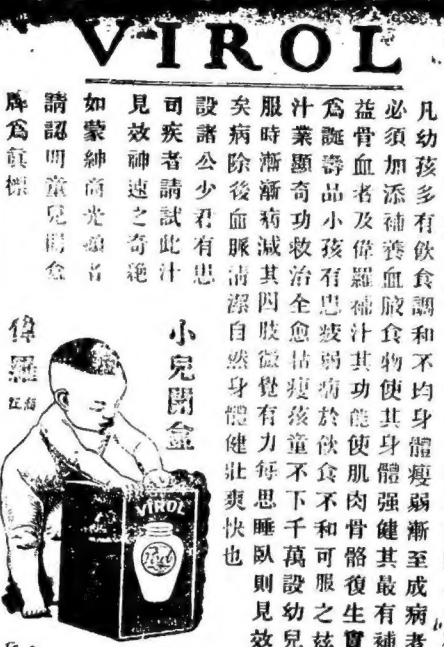 VIROL
凡幼孩多有飲食調和不均身體瘦弱漸至成病者
必須加添補養血液食物使其身體强健其最有補
益骨血者及偉羅補汁其功能使肌肉骨骼復生實
為誕壽品小孩有患疲弱病於飲食不和可服之茲
汁業顯奇功救治全愈枯瘦孩童不下千萬設幼兒
服時漸漸病減其四肢微覺有力每思睡臥則見效
矣病除後血脈清潔自然身體健壯爽快也
設諸公少君有患
司疾者請試此汁
見效神速之奇絕
如蒙紳商光顧者
請認明童兒開盒
牌為真標
小兒開盒
偉羅
VIROL